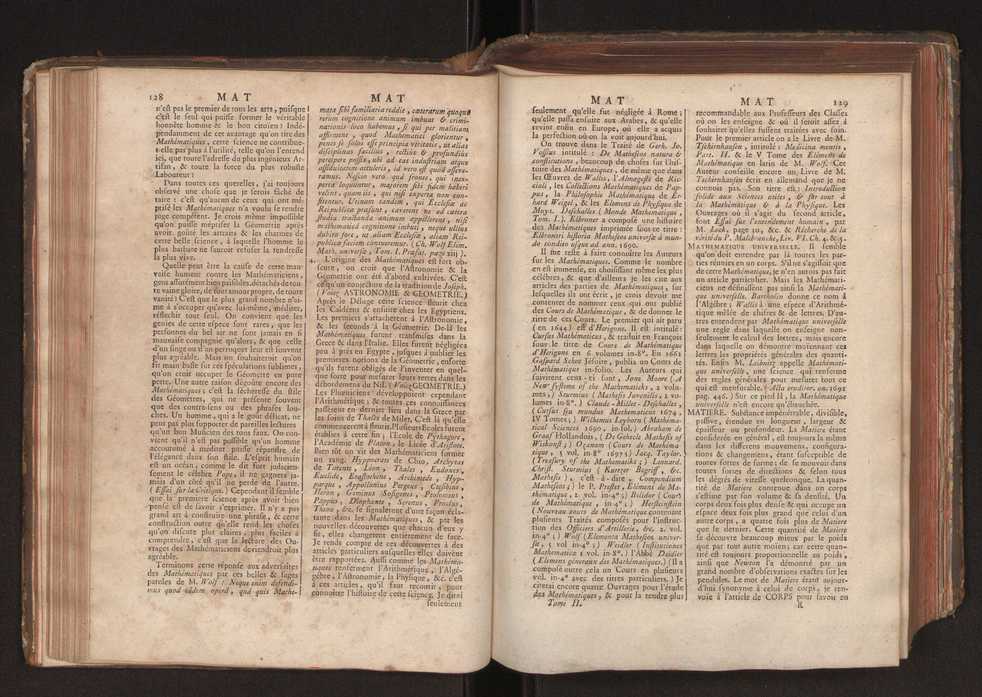 128 MAT MAT
n'est pas le premier de tous les arts, puisque
c'est le seul qui puisse former le véritable
honnête homme & le bon citoïen! Indé-
pendamment de cet avantage qu'on tire des
Mathématiques, cette science ne contribue-
t-elle pas plus à l'utilité, telle qu'on l'entend
ici, que toute l'adresse du plus ingénieux Ar-
tisan, & toute la force du plus robuste
Laboureur!
Dans toutes ces querelles, j'ai toujours
observé une chose que je serois fâché de
taire: c'est qu'aucun de ceux qui ont mé-
prisé les Mathématiques n'a voulu se rendre
juge compétent. Je crois même impossible
qu'on puisse mépriser la Géométrie après
avoir goûté les attraits & les charmes de
cette belle science, à laquelle l'homme le
plus barbare ne sauroit refuser la tendresse
la plus vive.
Quelle peut être la cause de cette mau-
vaise humeur contre les Mathématiciens,
gens assurément bien paisibles, détachés de tou-
te vaine gloire, de tout amour propre, de toute
vanité? C'est que le plus grand nombre n'ai-
me à s'occuper qu'avec lui-même, méditer,
réfléchir tout seul. On convient que les
génies de cette espece sont rares, que les
personnes du bel air ne sont jamais en si
mauvaise compagnie qu'alors, & que celle
d'un singe ou d'un perroquet leur est souvent
plus agréable. Mais on souhaiteroit qu'on
fît main basse sur ces spéculations sublimes,
qu'on croit occuper le Géometre en pure
perte. Une autre raison dégoûte encore des
Mathématiques: c'est la sécheresse du stile
des Géometres, qui ne présente souvent
que des contre-sens ou des phrases lou-
ches. Un homme, qui a le goût délicat, ne
peut pas plus supporter de pareilles lectures
qu'un bon Musicien des tons faux. On con-
vient qu'il n'est pas possible qu'un homme
accoutumé à méditer puisse répandre de
l'élégance dans son stile. L'esprit humain
est un océan, comme le dit fort judicieu-
sement le célebre Pope, il ne gagnera ja-
mais d'un côté qu'il ne perde de l'autre.
(Essai sur la Critique.) Cependant il semble
que la premiere science après avoir bien
pensé est de savoir s'exprimer. Il n'y a pas
grand art à construire une phrase, & cette
construction outre qu'elle rend les choses
qu'on discute plus claires, plus faciles à
comprendre, c'est que la lecture des Ou-
vrages des Mathématiciens deviendroit plus
agréable.
Terminons cette réponse aux adversaires
des Mathématiques par ces belles & sages
paroles de M. Wolf: Neque enim defendi-
mus quod eâdem operâ, quâ quis Mathe-
mata sibi familiaria reddit, cæterarum quoque
rerum cognitione animum imbuat & crimi-
nationis loco habemus, si qui per malitiam
affirment, quod Mathematici glorientur,
penes se solos esse principia veritatis, ut alias
disciplinas facilius, rectiùs & profundiùs
percipere possis, ubi ad eas industriam atque
assiduitatem attuleris, id vero est quod asseve-
ramus. Nescio verò quâ fronte, qui inex-
perta loquuntur, majorem sibi fidem haberi
velint, quam iis, qui rei experta nota con-
fitentur. Utinam tandem, qui Ecclesiæ &
Reipublicæ præsunt, caverent ne ad cætera
studia tractanda animum applicarent, nisi
mathematicâ cognitione imbuti, neque ullus
dubito fore, ut aliam Ecclesiæ, aliam Reis-
publicæ faciem contueremur. (Ch. Wolf Elem.
Math. universæ, Tom. I. Præfat. page xiij).
4. L'origine des Mathématiques est fort obs-
cure, on croit que l'Astronomie & la
Géométrie ont été d'abord cultivées. C'est
ce qu'on conjecture de la tradition de Joseph.
(Voïez ASTRONOMIE & GEOMETRIE.)
Après le Déluge cette science fleurit chez
les Caldéens & ensuite chez les Egyptiens.
Les premiers s'attacherent à l'Astronomie,
& les seconds à la Géométrie. De-là les
Mathématiques furent transmises dans la
Grece & dans l'Italie. Elles furent négligées
peu à près en Egypte, jusques à oublier les
premieres notions de la Géométrie, ensorte
qu'ils furent obligés de l'inventer en quel-
que sorte pour mesurer leurs terres dans les
débordemens du Nil. (Voïez GEOMETRIE.)
Les Phœniciens développoient cependant
l'Arithmétique, & toutes ces connoissances
passerent en dernier lieu dans la Grece par
les soins de Thalès de Milet. C'est là qu'elles
commencerent à fleurir. Plusieurs Ecoles furent
établies à cette fin; l'Ecole de Pythagore,
l'Académie de Platon, le Licée d'Aristote.
Bien-tôt on vit des Mathématiciens former
un rang. Hyppocrate de Chio, Archytas
de Tarente, Léon, Thales, Eudoxes,
Euclide, Eratosthene, Archimede, Hyp-
parque, Appollonius Pergæus, Ctesibius,
Heron, Geminus Sosigenes, Ptolomée,
Pappus, Diophante, Serenus, Proclus,
Theon, &c. se signalerent d'une façon écla-
tante dans les Mathématiques, & par les
nouvelles découvertes que chacun d'eux y
fit, elles changerent entierement de face.
Je rends compte de ces découvertes à des
articles particuliers ausquelles elles doivent
être rapportées. Aussi comme les Mathéma-
tiques renferment l'Arithmétique, l'Algé-
gébre, l'Astronomie, la Physique, &c. c'est
à ces articles, qu'il faut recourir, pour
connoître l'histoire de cette science. Je dirai
seulement
MAT MAT 129
seulement qu'elle fut négligée à Rome;
qu'elle passa ensuite aux Arabes, & qu'elle
revint enfin en Europe, où elle a acquis
la perfection où on la voit aujourd'hui.
On trouve dans le Traité de Gerh. Jo.
Vossius intitulé: De Matheseos natura &
constitutione, beaucoup de choses sur l'his-
toire des Mathématiques, de même que dans
les Œuvres de Wallis, l'Almageste de Ric-
cioli, les Collections Mathématiques de Pap-
pus, la Philosophie Mathématique de Er-
hard Weigel, & les Elemens de Physique de
Moys. Deschalles (Monde Mathématique,
Tom. I.). Elbroner a composé une histoire
des Mathématiques imprimée sous ce titre:
Elbronèri historia Matheseos universæ à mun-
do condito usque ad ann. 1690.
Il me reste à faire connoître les Auteurs
sur les Mathématiques. Comme le nombre
en est immense, en choisissant même les plus
célebres, & que d'ailleurs je les cite aux
articles des parties de Mathématiques, sur
lesquelles ils ont écrit, je crois devoir me
contenter de nommer ceux qui ont publié
des Cours de Mathématique, & de donner le
titre de ces Cours. Le premier qui ait paru
(en 1644) est d'Hérigone. Il est intitulé:
Cursus Mathematicus, & traduit en François
sous le titre de Cours de Mathématique
d'Hérigone en 6 volumes in-8°. En 1661
Gaspard Schot Jésuite, publia un Cours de
Mathématique in-folio. Les Auteurs qui
suivirent ceux-ci sont, Jona Moore (A
New systeme of the Mathematicks, 2 volu-
mes,) Sturmius (Mathesis Juvenilis, 2 vo-
lumes in-8°.) Claude-Millet-Deschalles,
(Cursus seu mundus Mathematicus 1674,
IV Tomes;) Wilhemus Leyborn (Mathema-
tical Sciences 1690, in-fol.) Abraham de
Graaf Hollandois, (De Geheele Mathesis of
Wiskonst,) Ozanam (Cours de Mathéma-
tique, 5 vol. in-8° 1697;) Jacq. Taylor.
(Treasury of the Mathematicks;) Leonard.
Christ. Sturmius (Kurtzer Begrif, &c.
Mathesis), c'est-à-dire, Compendium
Matheseos;) le P. Prestet, Elemens de Ma-
thématique, 2. vol. in-4°;) Belidor (Cours
de Mathématique, in-4°;) Hederichsstein
(Nouveau cours de Mathématique contenant
plusieurs Traités composés pour l'instruc-
tion des Officiers d'Artillerie, &c. 2. vol.
in-4°;) Wolf (Elementa Matheseos univer-
sæ, 5 vol in-4°;) Weidler (Institutiones
Mathematicæ 2 vol. in-8°.) l'Abbé Deidier
(Elémens généraux des Mathématiques.) (Il a
composé outre cela un Cours en plusieurs
vol. in-4° avec des titres particuliers.) Je
citerai encore quatre Ouvrages pour l'étude
des Mathématiques, & pour la rendre plus
Tome II.
recommandable aux Professeurs des Classes
où on les enseigne & où il seroit assez à
souhaiter qu'elles fussent traitées avec soin.
Pour le premier article on a le Livre de M.
Tschirnhausen, intitulé: Medicina mentis,
Part. II. & le V Tome des Elémens de
Mathématique en latin de M. Wolf. Cet
Auteur conseille encore un Livre de M.
Tschirnhausen écrit en allemand que je ne
connois pas. Son titre est: Introduction
solide aux Sciences utiles, & sur tout à
la Mathématique & à la Physique. Les
Ouvrages où il s'agit du second article,
sont Essai sur l'entendement humain, par
M. Lock, page 30, &c. & Récherche de la
vérité du P. Malebranche, Liv. VI. Ch. 4. & 5.
MATHEMATIQUE UNIVERSELLE. Il semble
qu'on doit entendre par là toutes les par-
ties réunies en un corps. S'il ne s'agissoit que
de cette Mathématique, je n'en aurois pas fait
un article particulier. Mais les Mathémati-
ciens ne définissent pas ainsi la Mathémati-
que universelle. Bartholin donne ce nom à
l'Algébre; Wallis à une espece d'Arithmé-
tique mêlée de chifres & de lettres. D'au-
tres entendent par Mathématique universelle
une regle dans laquelle on enseigne non-
seulement le calcul des lettres, mais encore
dans laquelle on démontre moïennant ces
lettres les propriétés générales des quanti-
tés. Enfin M. Leibnitz appelle Mathémati-
que universelle, une science qui renferme
des regles générales pour mesurer tout ce
qui est mesurable. (Acta eruditor. an. 1691
pag. 446. Sur ce pied là, la Mathématique
universelle n'est encore qu'ébauchée.
MATIERE. Substance impénétrable, divisible,
passive, étendue en longueur, largeur &
épaisseur ou profondeur. La Matiere étant
considerée en général, est toujours la même
dans les differens mouvemens, configura-
tions & changemens, étant susceptible de
toutes sortes de formes; de se mouvoir dans
toutes sortes de directions & selon tous
les dégrés de vitesse quelconque. La quan-
tité de Matiere contenue dans on corps
s'estime par son volume & sa densité. Un
corps deux fois plus dense & qui occupe un
espace deux fois plus grand que celui d'un
autre corps, a quatre fois plus de Matiere
que le dernier. Cette quantité de Matiere
se découvre beaucoup mieux par le poids
que par tout autre moïen; car cette quan-
tité est toujours proportionnelle au poids,
ainsi que Newton l'a démontré par un
grand nombre d'observations exactes sur les
pendules. Le mot de Matiere étant aujour-
d'hui synonyme à celui de corps, je ren-
voïe à l'article de CORPS pour savoir en
R